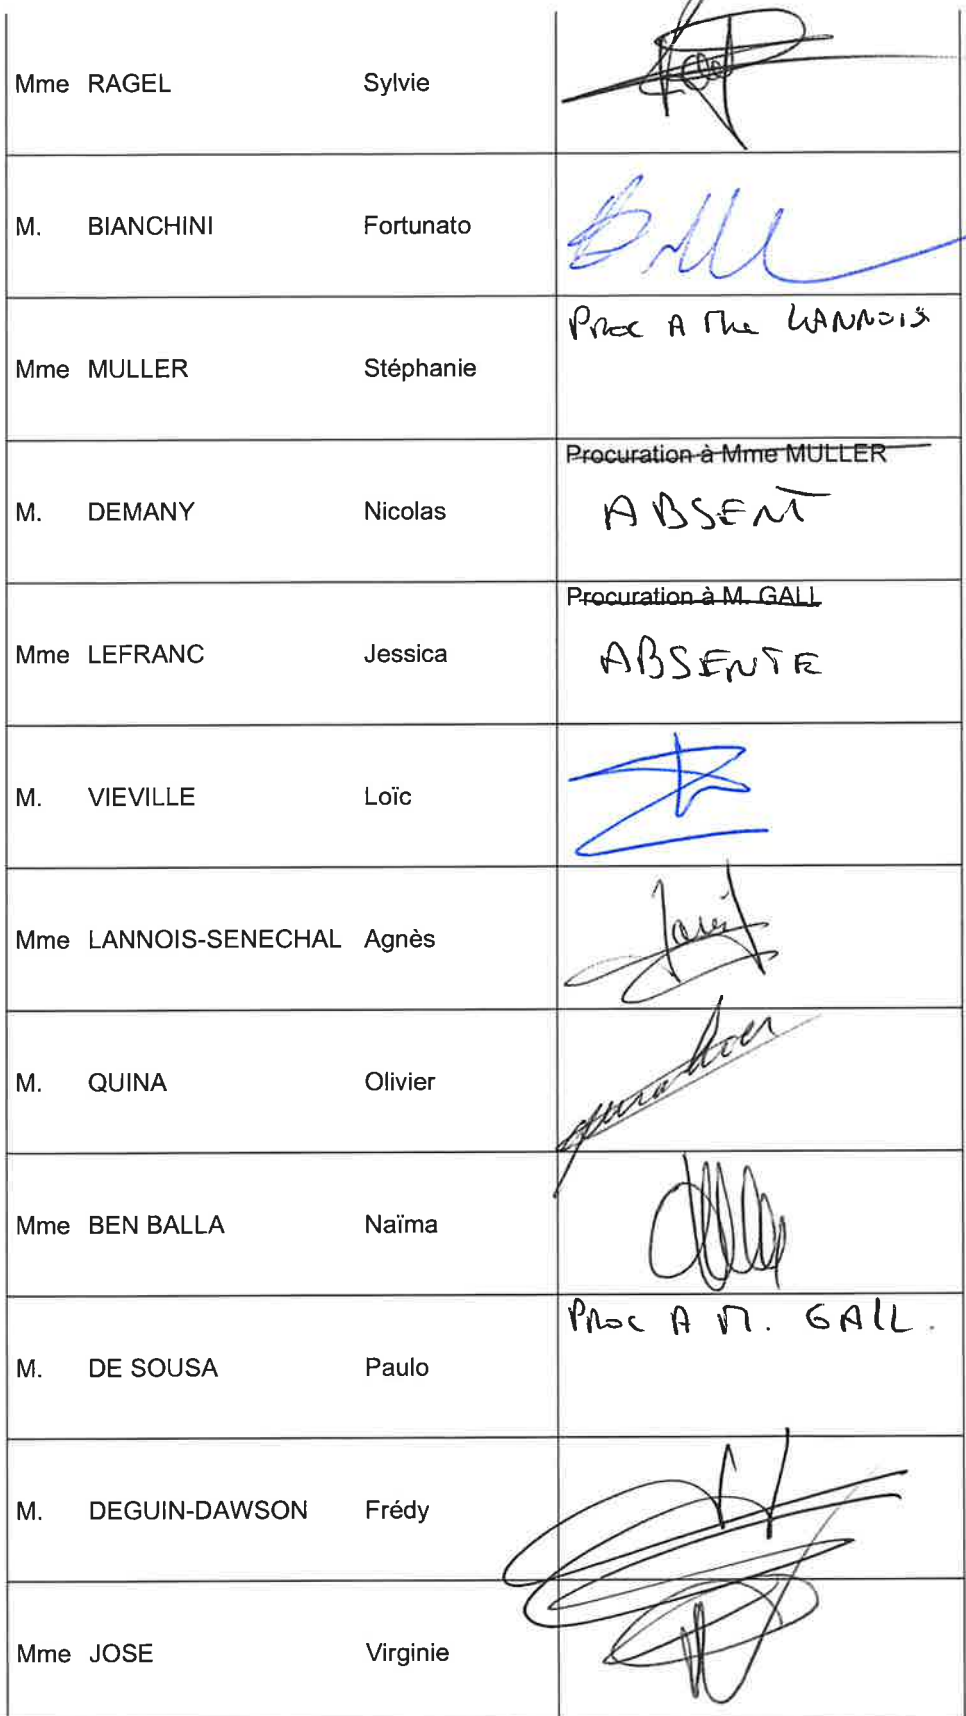 Mme RAGEL Sylvie
M. BIANCHINI Fortunato
Mme MULLER Stéphanie
Proc A Mme LANNOIS
M. DEMANY Nicolas
Procuration à Mme MULLER
ABSENT
Mme LEFRANC Jessica
Procuration à M. GALL
ABSENTE
M. VIEVILLE Loïc
Mme LANNOIS-SENECHAL Agnès
M. QUINA Olivier
Mme BEN BALLA Naïma
M. DE SOUSA Paulo
Proc A M. GALL.
M. DEGUIN-DAWSON Frédy
Mme JOSE Virginie